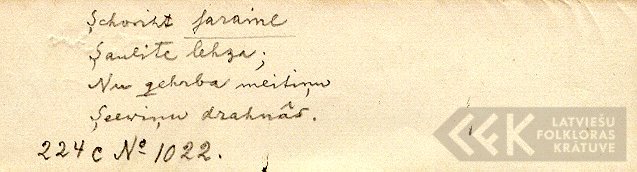 Şchoriht saraine
Şaulite lehza;
Nu gehrba meitiņu
Şeewiņu drahnâs.
224 c № 1022.
LATVIEŠU
FOLKLORAS
KRĀTUVE